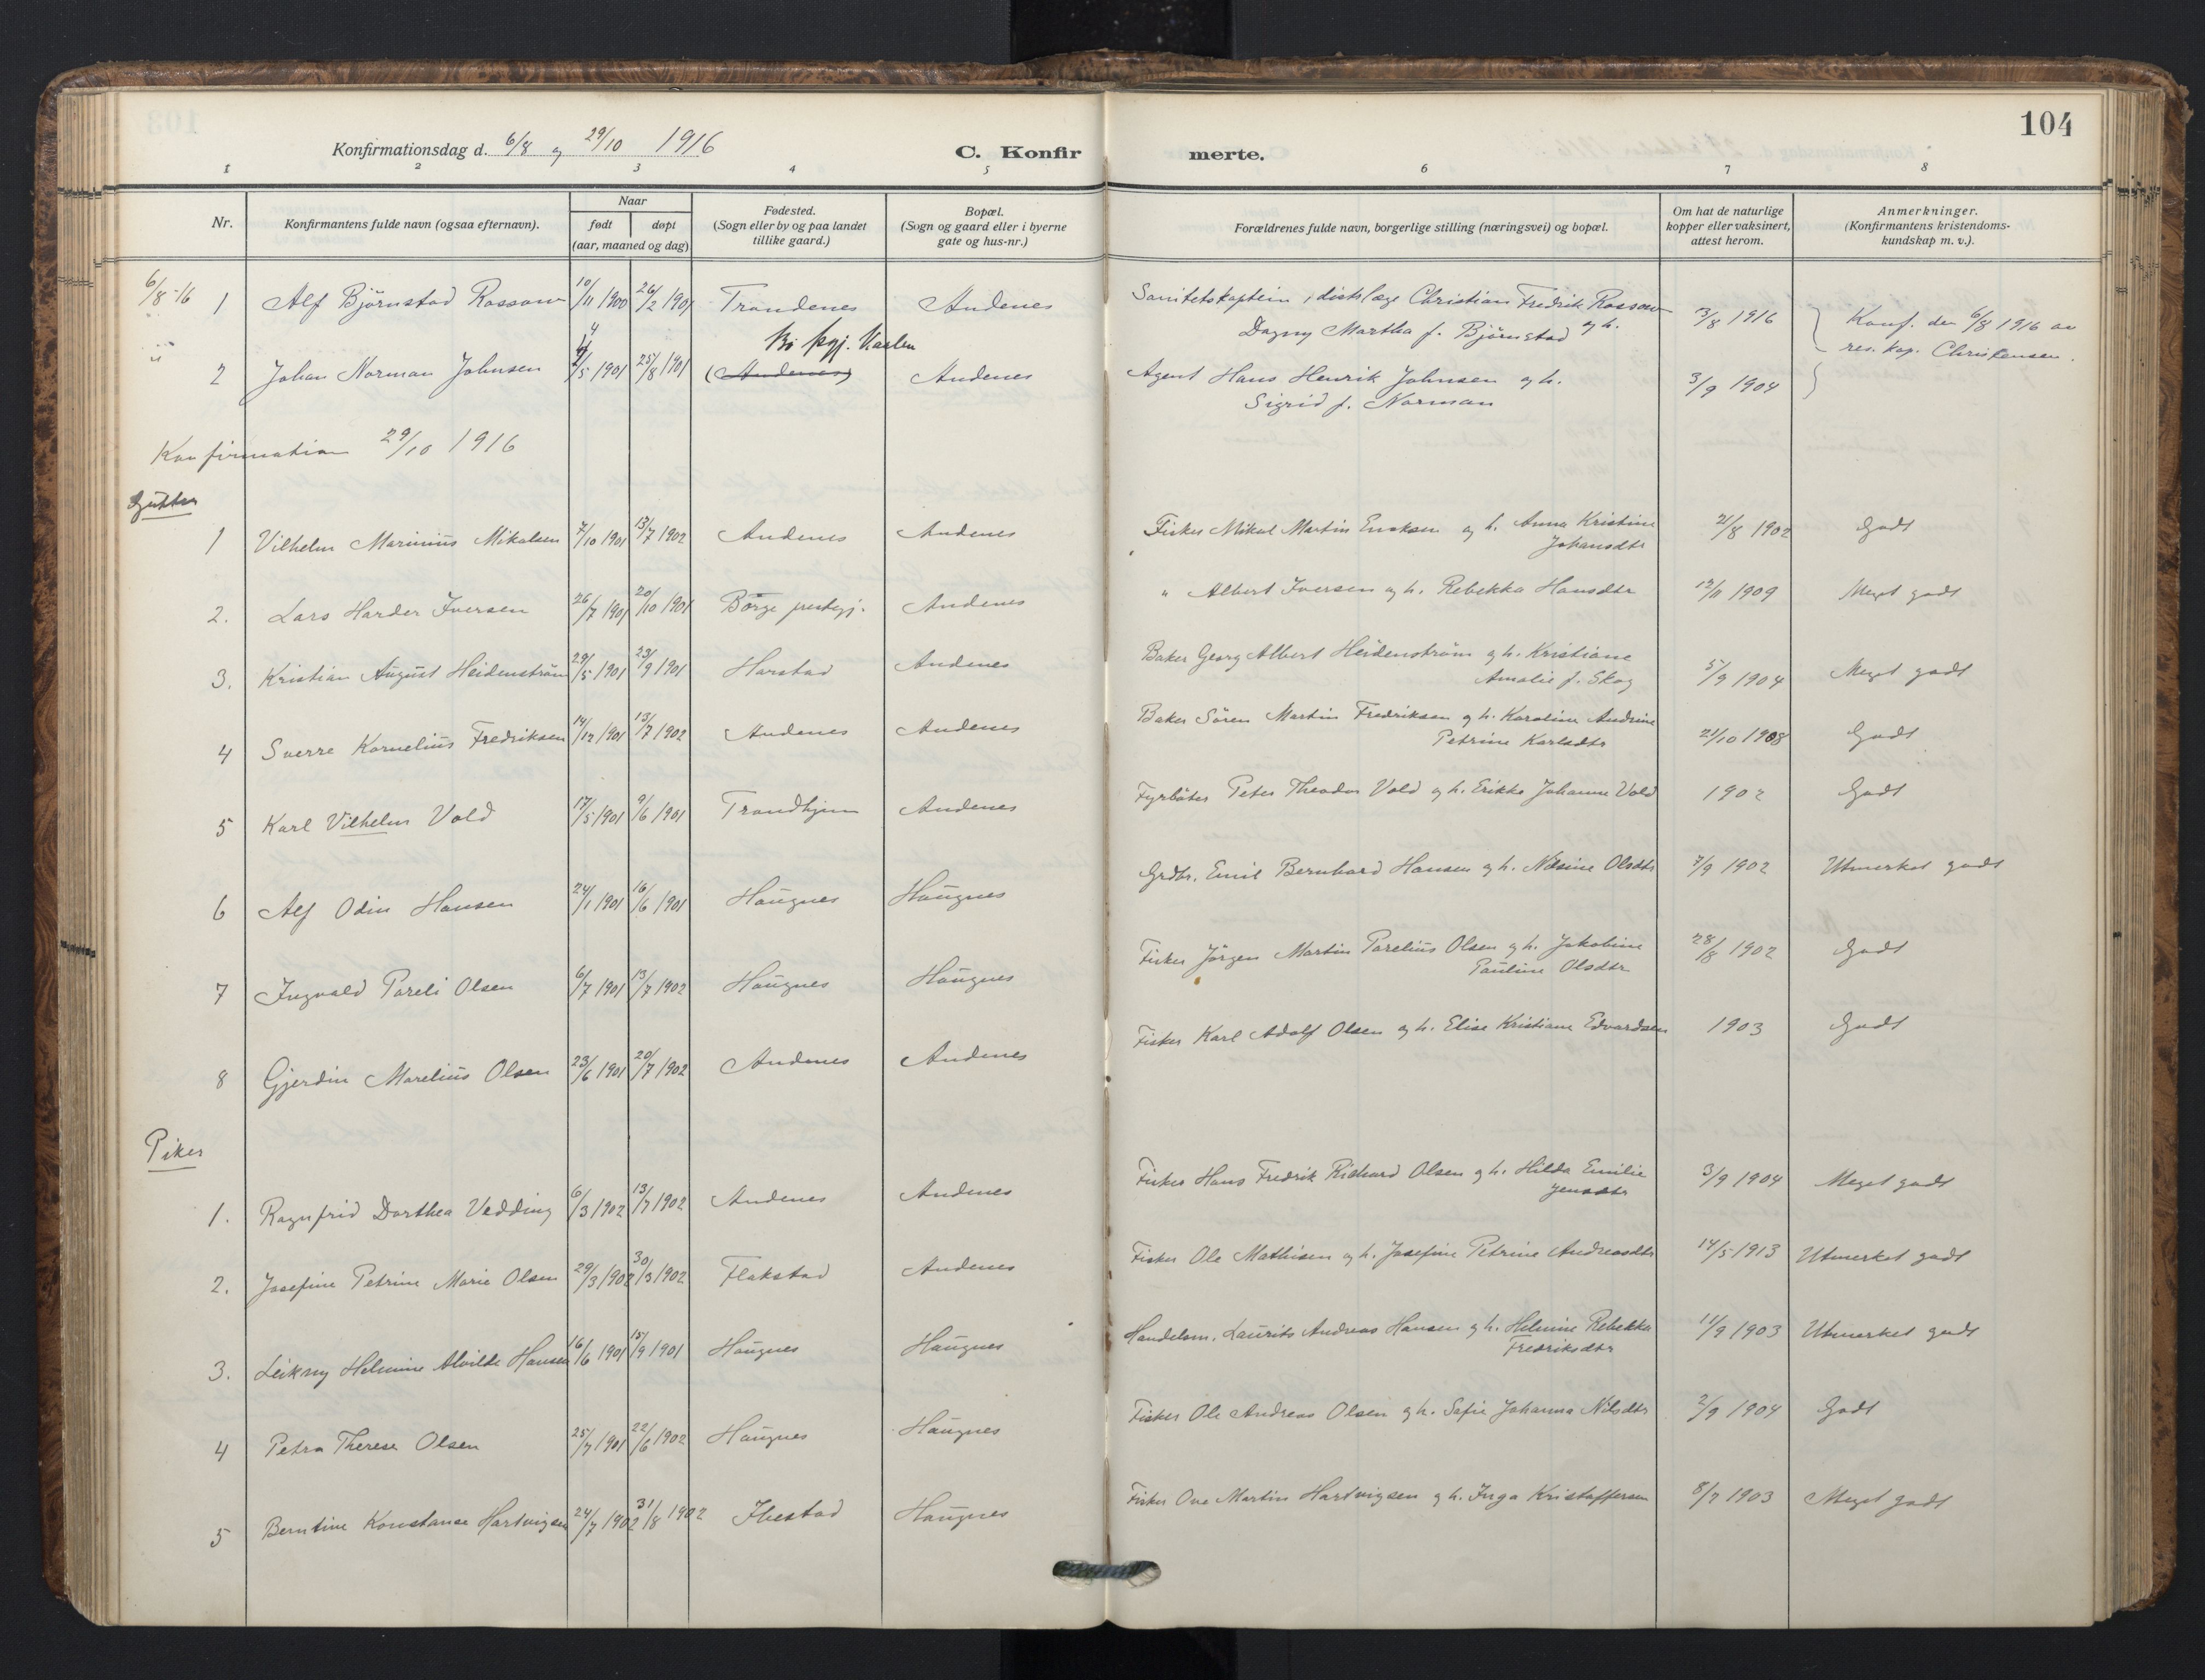 104
Konfirmationsdag d. 6/8 og 29/10 1916
C. Konfirmerte.
1 2 3 4 5 6 7 8
Nr.
Konfirmantens fulde navn (ogsaa efternavn).
Naar
født døpt
(aar, maaned og dag)
Fødested.
(Sogn eller by og paa landet
tillike gaard.)
Bopæl.
(Sogn og gaard eller i byerne
gate og hus-nr.)
Forældrenes fulde navn, borgerlige stilling (næringsvei) og bopæl.
Om hat de naturlige
kopper eller vaksinert,
attest herom.
Anmerkninger.
(Konfirmantens kristendoms-
kundskap m. v.).
6/8-16 1 Alf Björnstad Rossow 10/11 1900 26/2 1901 Trondenes Andenes Sanitetskaptein, distrlæge Christian Fredrik Rossow og h.
Dagny Martha f. Björnstad 13/8 1916 Konf. den 6/8 1916 av
res. kap. Christensen.
" 2 Johan Norman Johnsen 4/5 1901 25/8 1901 Bö pgj. V.aalen
(Andenes) Andenes Agent Hans Henrik Johnsen og h.
Sigrid f. Norman 3/9 1904
Konfirmation 29/10 1916
Gutter
1 Vilhelm Marinius Mikalsen 7/10 1901 13/7 1902 Andenes Andenes Fisker Mikal Martin Enoksen og h. Anna Kristine
Johansdtr 21/8 1902 Godt
2. Lars Harder Iversen 26/7 1901 20/10 1901 Börge prestegj. Andenes " Albert Iversen og h. Rebekka Hansdtr 12/11 1909 Meget godt
3. Kristian August Heidenström 29/5 1901 23/9 1901 Harstad Andenes Baker Georg Albert Heidenström og h. Kristiane
Amalie f. Skog 5/9 1904 Meget godt
4 Sverre Kornelius Fredriksen 14/12 1901 13/7 1902 Andenes Andenes Baker Sören Martin Fredriksen og h. Karoline Andrine
Petrine Karlsdtr 21/10 1908 Godt
5 Karl Vilhelm Vold 17/5 1901 9/6 1901 Trondhjem Andenes Fyrböter Peter Theodor Vold og h. Erikka Johanne Vold 1902 Godt
6 Alf Odin Hansen 24/1 1901 16/6 1901 Haugnes Haugnes Grdbr. Emil Bernhard Hansen og h. Nilsine Olsdtr 7/9 1902 Utmerket godt
7 Ingvald Pareli Olsen 6/7 1901 13/7 1902 Haugnes Haugnes Fisker Jörgen Martin Parelius Olsen og h. Jakobine
Pauline Olsdtr 28/8 1902 Godt
8 Gjerdin Marelius Olsen 23/6 1901 20/7 1902 Andenes Andenes Fisker Karl Adolf Olsen og h. Elise Kristiane Edvardsen 1903 Godt
Piker
1. Ragnfrid Dorthea Vedding 6/3 1902 13/7 1902 Andenes Andenes Fisker Hans Fredrik Richard Olsen og h. Hilda Emilie
Jensdtr 3/9 1904 Meget godt
2. Josefine Petrine Marie Olsen 29/3 1902 30/3 1902 Flakstad Andenes Fisker Ole Mathisen og h. Josefine Petrine Andreasdtr 14/5 1913 Utmerket godt
3. Leikny Helmine Alvilde Hansen 16/6 1901 15/9 1901 Haugnes Haugnes Handelsm. Laurits Andreas Hansen og h. Helmine Rebekka
Fredriksdtr 11/9 1903 Utmerket godt
4 Petra Therese Olsen 25/7 1901 22/6 1902 Haugnes Haugnes Fisker Ole Andreas Olsen og h. Sofie Johanna Nilsdtr 2/9 1904 Godt
5 Berntine Konstanse Hartvigsen 24/7 1902 31/8 1902 Ibestad Haugnes Fisker Ove Martin Hartvigsen og h. Inga Kristoffersen 8/7 1903 Meget godt